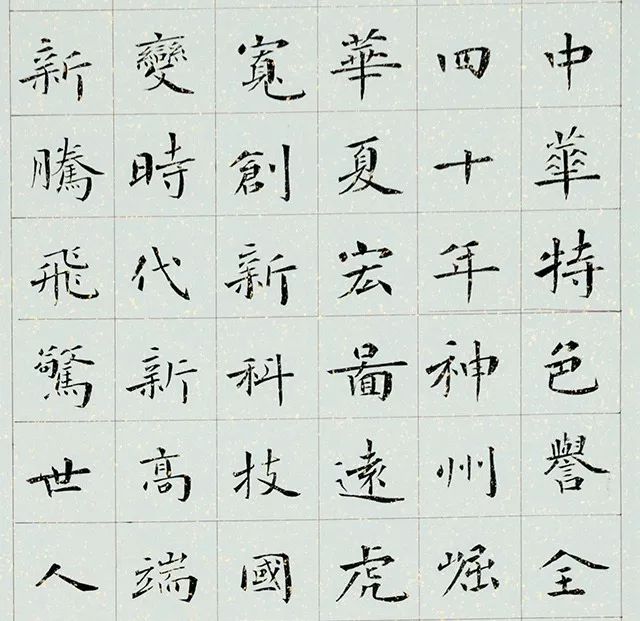 中華特色譽全
四十年神州崛
華夏宏圖遠虎
寬創新科技國
變時代新高端
新騰飛驚世人